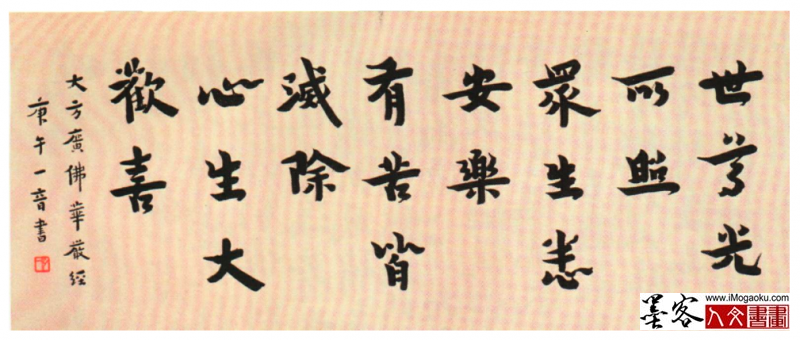 世尊光
所照
眾生悉
安樂
有苦皆
滅除
心生大
歡喜
大方廣佛華嚴經
庚午一音書
墨客
www.iMogaoku.com
人文書畫